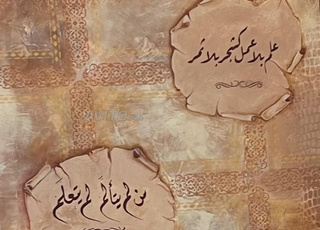 علم بلا عمل كشجر بلا ثمر
من لم يتألَّم لم يتعلم